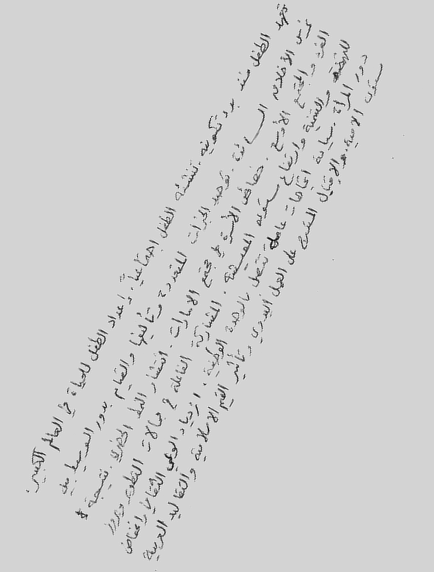 تعهد الطفل منذ بدء تكوينه. تنشئة الطفل اجتماعياً. إعداد الطفل للحياة في العالم الكبير.
غرس الأخلاق السائدة. توحيد الخبرات المتعددة وتأليفها والقيام بدور الوسيط بين
الفرد والمجتمع الأوسع. خصائص الأسرة في مجتمع الامارات. انتشار النمط الحضري نتيجة
للنهضة والتنمية وارتفاع مستوى المعيشة. المشاركة الفاعلة في مجالات التطوير وبروز
دور المرأة. سيادة اتجاهات عامة تتصل بالوحدة الوطنية. ازدياد الوعي الثقافي وانخفاض
مستوى الأمية. الإقبال على العمل اليدوي وتأثير القيم الاسلامية والتقاليد العربية